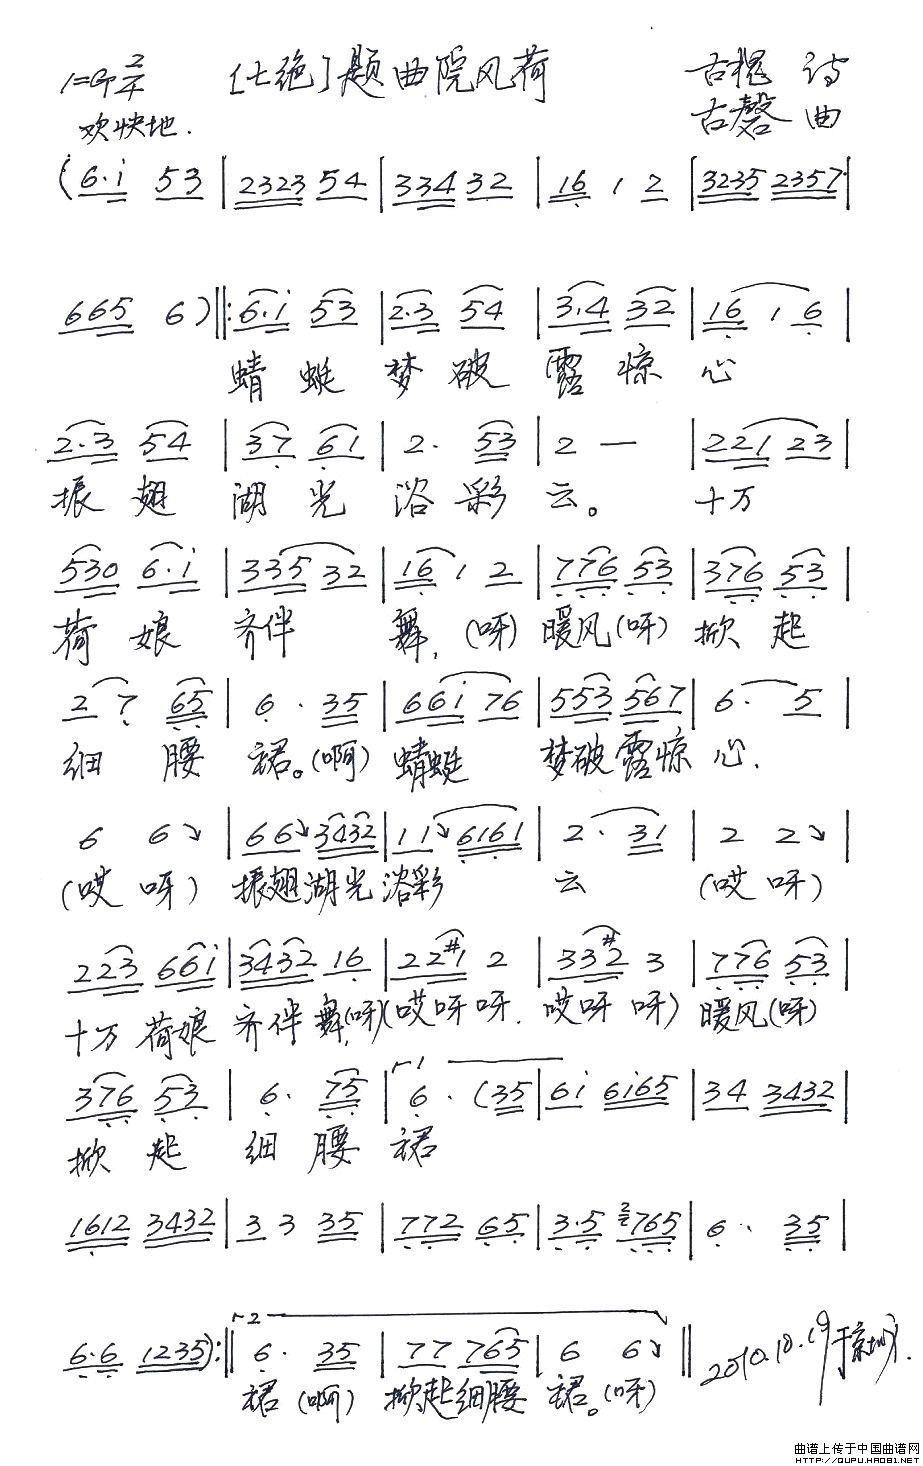 1=G 2/4 [七绝]题曲院风荷 古槐 诗
欢快地. 古磬 曲
(6·i 53 | 2323 54 | 334 32 | 16 1 2 | 3235 2357 |
665 6) ‖: 6·i 53 | 2·3 54 | 3·4 32 | 16 1 6 |
蜻 蜓 梦 破 露 惊 心
2·3 54 | 37 61 | 2· 53 | 2 — | 221 23 |
振 翅 湖 光 浴 彩 云。 十万
530 6·i | 335 32 | 16 1 2 | 776 53 | 376 53 |
荷 娘 齐伴 舞, (呀) 暖风(呀) 掀 起
2 7 65 | 6 · 35 | 66i 76 | 553 567 | 6· 5 |
细 腰 裙。(啊) 蜻蜓 梦破露惊 心.
6 6↘ | 66↘ 3432 | 11↘ 6161 | 2 · 31 | 2 2↘ |
(哎 呀) 振翅湖光 浴彩 云 (哎 呀)
223 66i | 3432 16 | 22#1 2 | 33#2 3 | 776 53 |
十万 荷娘 齐伴 舞,(呀)(哎呀呀. 哎呀 呀) 暖风(呀)
376 53 | 6· 75 | 1 6 · (35 | 6i 6i65 | 34 3432 |
掀 起 细 腰 裙
1612 3432 | 3 3 35 | 772 65 | 3·5 2765 | 6 · 35 |
6·6 1235) :‖ 2 6· 35 | 77 765 | 6 6↘ ‖ 2010.10.19
裙 (啊) 掀起细腰 裙。(呀)
曲谱上传于中国曲谱网
HTTP://QUPU.HAO81.NET